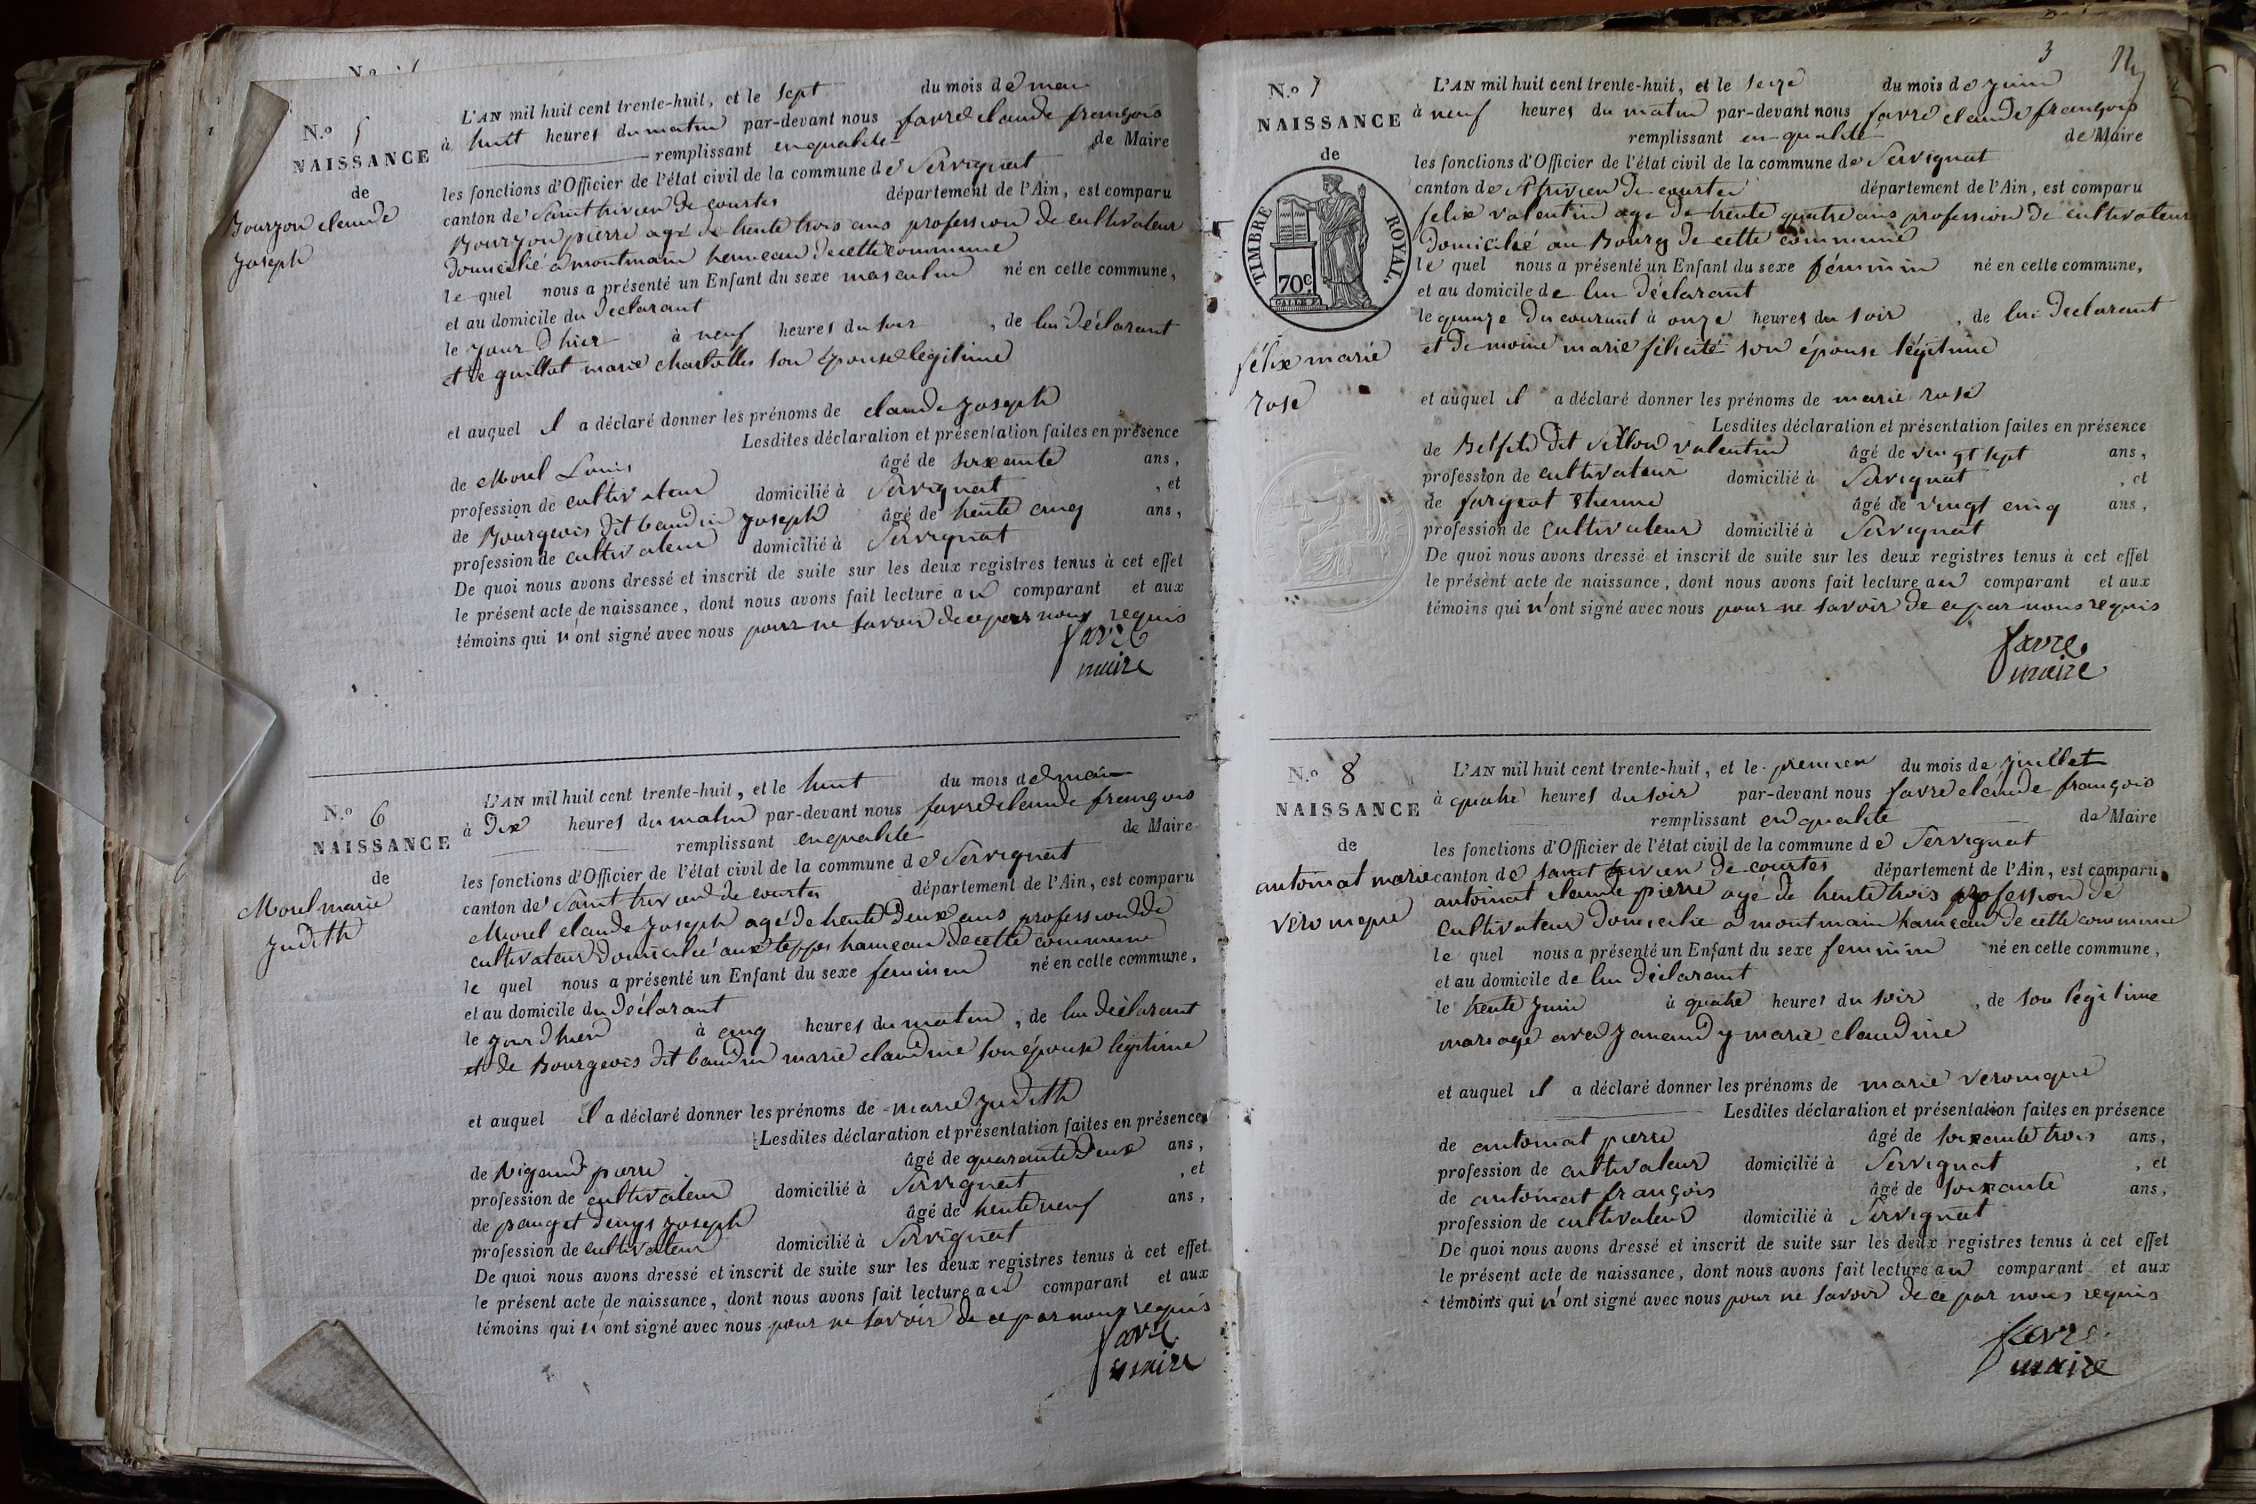 N.o 5
NAISSANCE
de
Bourjon claude
Joseph
L'AN mil huit cent trente-huit, et le sept du mois de mai
à huit heures du matin par-devant nous favre claude françois
remplissant en qualité de Maire
les fonctions d'Officier de l'état civil de la commune de Servignat
canton de Saint trivier de courtes département de l'Ain, est comparu
Bourjon pierre agé de trente trois ans profession de cultivateur
domicilié a montmain hameau de cette commune
le quel nous a présenté un Enfant du sexe masculin né en cette commune,
et au domicile du déclarant
le jour d'hier à neuf heures du soir , de lui déclarant
et de guillot marie son épouse légitime
et auquel il a déclaré donner les prénoms de claude joseph
Lesdites déclaration et présentation faites en présence
de Morel Louis âgé de soixante ans,
profession de cultivateur domicilié à Servignat , et
de Bourgeois dit baudin joseph âgé de trente cinq ans,
profession de cultivateur domicilié à Servignat
De quoi nous avons dressé et inscrit de suite sur les deux registres tenus à cet effet
le présent acte de naissance, dont nous avons fait lecture au comparant et aux
témoins qui n'ont signé avec nous pour ne savoir de ce par nous requis
favre
maire
N.o 6
NAISSANCE
de
Morel marie
Judith
L'AN mil huit cent trente-huit, et le huit du mois de mai
à dix heures du matin par-devant nous favre claude françois
remplissant en qualité de Maire
les fonctions d'Officier de l'état civil de la commune de Servignat
canton de Saint trivier de courtes département de l'Ain, est comparu
Morel claude joseph agé de trente deux ans profession de
cultivateur domicilié aux teppes hameau de cette commune
le quel nous a présenté un Enfant du sexe feminin né en cette commune,
et au domicile du déclarant
le jour d'hier à cinq heures du matin , de lui déclarant
et de Bourgeois dit baudin marie claudine son épouse légitime
et auquel il a déclaré donner les prénoms de marie judith
Lesdites déclaration et présentation faites en présence
de Rigaud pierre âgé de quarante deux ans,
profession de cultivateur domicilié à Servignat , et
de pauget denys joseph âgé de trente neuf ans,
profession de cultivateur domicilié à Servignat
De quoi nous avons dressé et inscrit de suite sur les deux registres tenus à cet effet
le présent acte de naissance, dont nous avons fait lecture au comparant et aux
témoins qui n'ont signé avec nous pour ne savoir de ce par nous requis
favre
maire
3
N.o 7
NAISSANCE
de
TIMBRE ROYAL.
70c.
félix marie
rose
L'AN mil huit cent trente-huit, et le seize du mois de juin
à neuf heures du matin par-devant nous favre claude françois
remplissant en qualité de Maire
les fonctions d'Officier de l'état civil de la commune de Servignat
canton de St trivier de courtes département de l'Ain, est comparu
felix valentin agé de trente quatre ans profession de cultivateur
domicilié au Bourg de cette commune
le quel nous a présenté un Enfant du sexe féminin né en cette commune,
et au domicile de lui déclarant
le quinze du courant à onze heures du soir , de lui déclarant
et de moine marie félicité son épouse légitime
et auquel il a déclaré donner les prénoms de marie rose
Lesdites déclaration et présentation faites en présence
de Belfils dit valentin âgé de vingt sept ans,
profession de cultivateur domicilié à Servignat , et
de fargeot Etienne âgé de vingt cinq ans,
profession de cultivateur domicilié à Servignat
De quoi nous avons dressé et inscrit de suite sur les deux registres tenus à cet effet
le présent acte de naissance, dont nous avons fait lecture au comparant et aux
témoins qui n'ont signé avec nous pour ne savoir de ce par nous requis
favre
maire
N.o 8
NAISSANCE
de
antoinat marie
véronique
L'AN mil huit cent trente-huit, et le premier du mois de juillet
à quatre heures du soir par-devant nous favre claude françois
remplissant en qualité de Maire
les fonctions d'Officier de l'état civil de la commune de Servignat
canton de saint trivier de courtes département de l'Ain, est comparu
antoinat claude pierre agé de trente trois profession de
cultivateur domicilié a montmain hameau de cette commune
le quel nous a présenté un Enfant du sexe feminin né en cette commune,
et au domicile de lui déclarant
le trente juin à quatre heures du soir , de son légitime
mariage avec janaudy marie claudine
et auquel il a déclaré donner les prénoms de marie veronique
Lesdites déclaration et présentation faites en présence
de antoinat pierre âgé de soixante trois ans,
profession de cultivateur domicilié à Servignat , et
de antoinat françois âgé de soixante ans,
profession de cultivateur domicilié à Servignat
De quoi nous avons dressé et inscrit de suite sur les deux registres tenus à cet effet
le présent acte de naissance, dont nous avons fait lecture au comparant et aux
témoins qui n'ont signé avec nous pour ne savoir de ce par nous requis
favre
maire